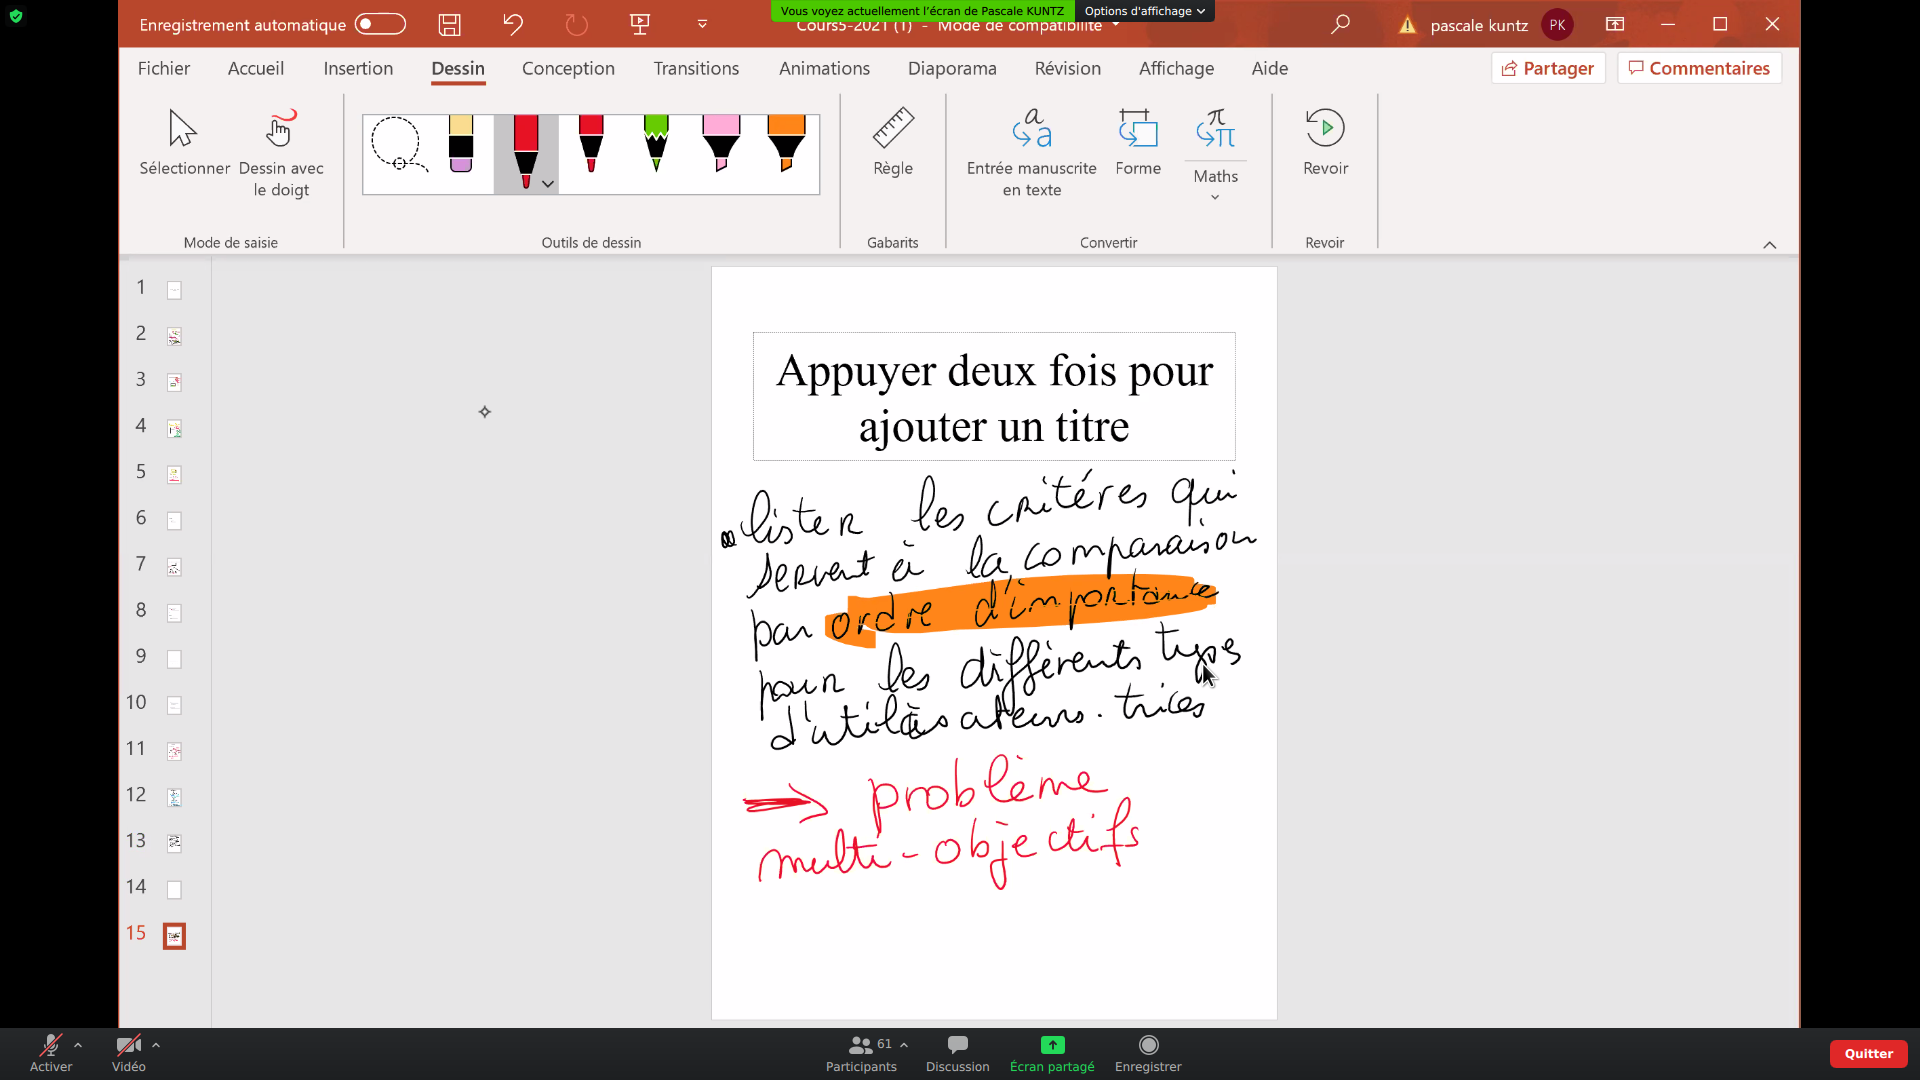 Vous voyez actuellement l'écran de Pascale KUNTZ
Options d'affichage
Enregistrement automatique
Cours5-2021 (1) - Mode de compatibilité
pascale kuntz
PK
Fichier
Accueil
Insertion
Dessin
Conception
Transitions
Animations
Diaporama
Révision
Affichage
Aide
Partager
Commentaires
Sélectionner
Dessin avec
le doigt
Règle
Entrée manuscrite
en texte
Forme
Maths
Revoir
Mode de saisie
Outils de dessin
Gabarits
Convertir
Revoir
1
2
3
4
5
6
7
8
9
10
11
12
13
14
15
Appuyer deux fois pour
ajouter un titre
lister les critéres qui
servent à la comparaison
par ordre d'importance
pour les différents types
d'utilisateurs.trices
problème
multi-objectifs
Activer
Vidéo
61
Participants
Discussion
Écran partagé
Enregistrer
Quitter